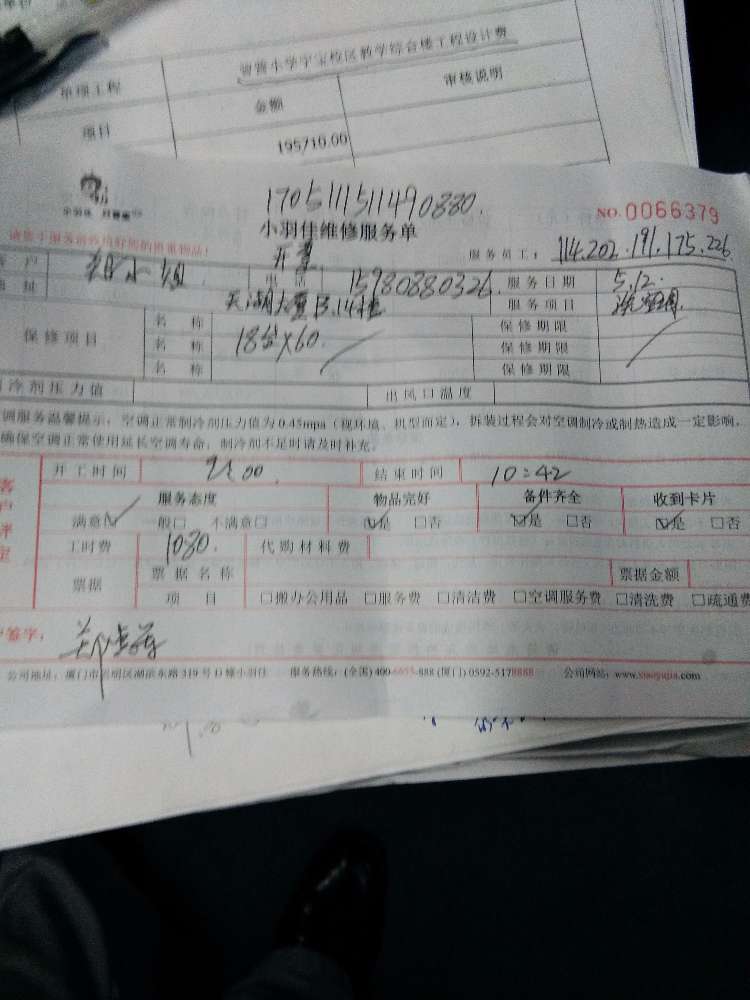 单项工程 宁宝校区教学综合楼工程设计费
项目 金额 审核说明
195710.00
1705111511490880
NO. 0066379
小羽佳维修服务单
开票
服务员工: 114.202.191.175.226
小姐 电话 15980880326 服务日期 5.12.
地址 天湖大厦B.14楼 服务项目
保修项目 名称 18台×60 保修期限
名称 保修期限
名称 保修期限
制冷剂压力值 出风口温度
调服务温馨提示:空调正常制冷剂压力值为0.45mpa(视环境、机型而定),拆装过程会对空调制冷或制热造成一定影响,
确保空调正常使用延长空调寿命,制冷剂不足时请及时补充。
开工时间 9:00 结束时间 10:42
客户评定 服务态度 物品完好 备件齐全 收到卡片
满意☑ 一般□ 不满意□ ☑是 □否 ☑是 □否 ☑是 □否
工时费 1080. 代购材料费
票据 票据名称 票据金额
项目 □搬办公用品 □服务费 □清洁费 □空调服务费 □清洗费 □疏通费
签字:
公司地址:厦门市思明区湖滨东路319号D幢小羽佳 服务热线:(全国)400-6655-888 (厦门) 0592-5178888 公司网站:www.xiaoyujia.com